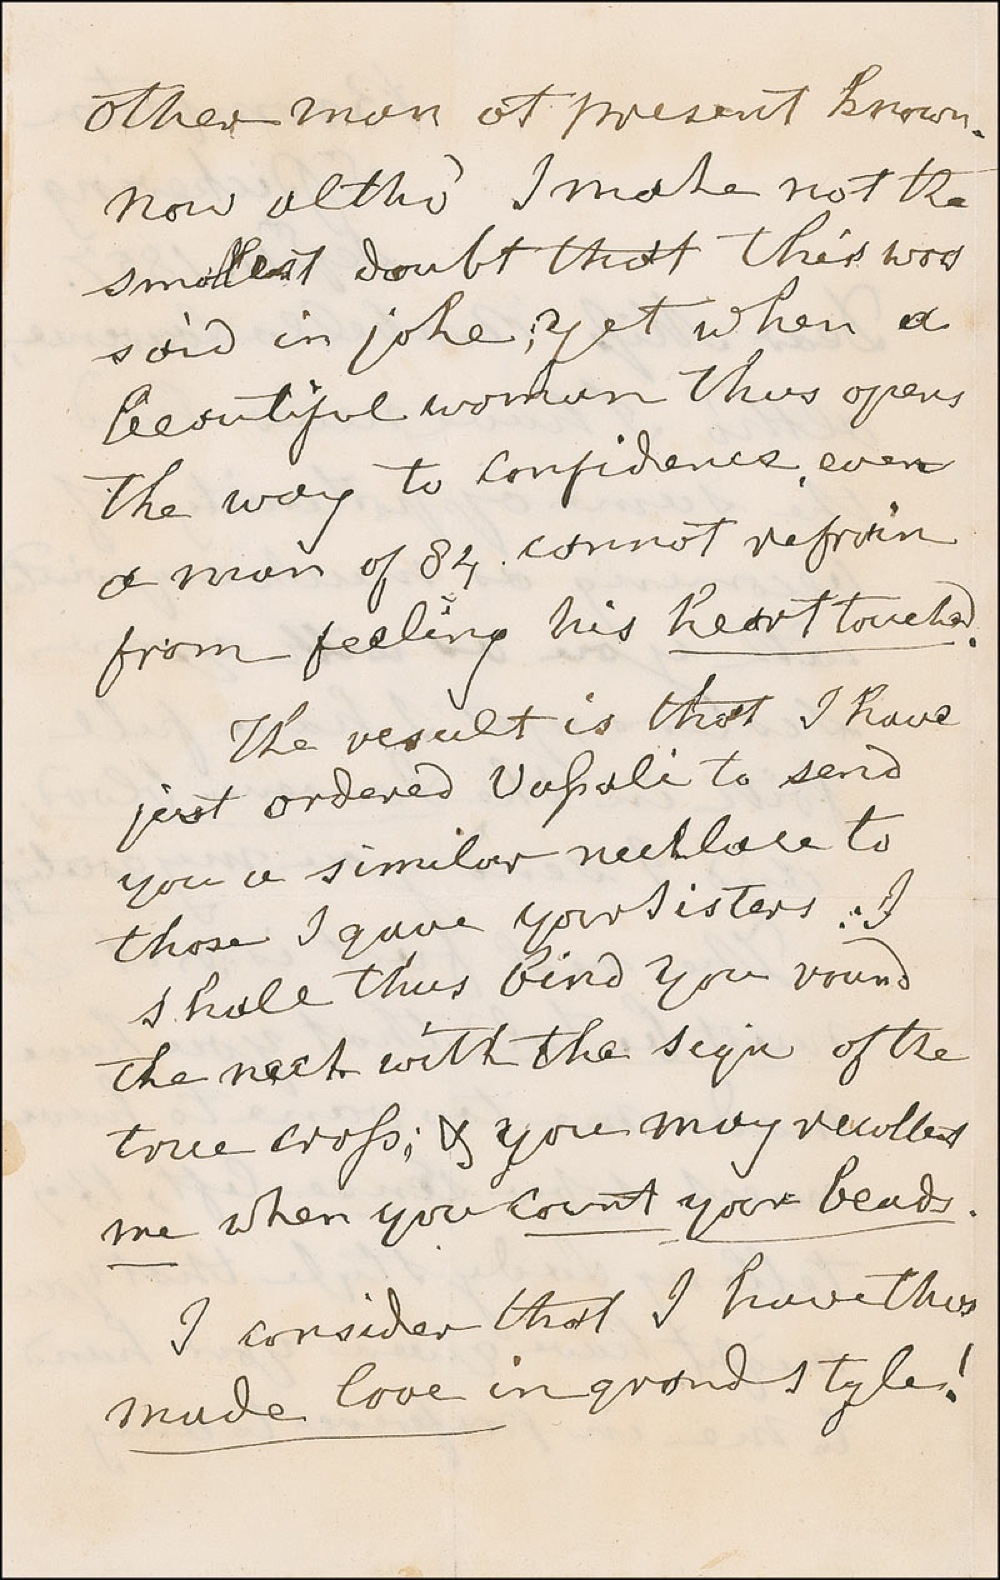 other man at present known.
now altho' I make not the
smallest doubt that this was
said in joke; yet when a
beautiful woman thus opens
the way to confidence, even
a man of 84. cannot refrain
from feeling his heart touched.
The result is that I have
just ordered Vassali to send
you a similar necklace to
those I gave your sisters. I
shall thus bind you round
the neck with the sign of the
true cross; & you may recollect
me when you count your beads.
I consider that I have thus
made love in grand style!